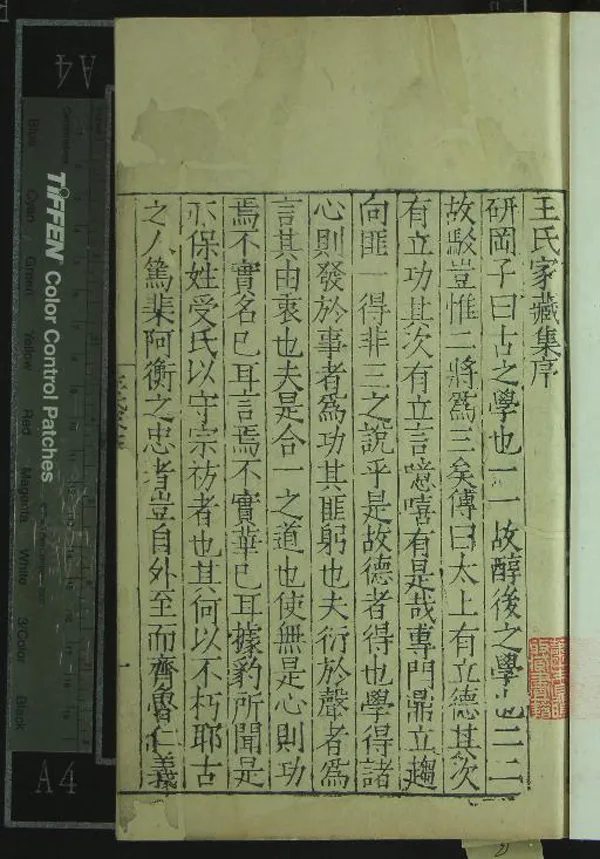 王氏家藏集序
研岡子曰古之學也一一故醇後之學也二二
故駁豈惟二將爲三矣傳曰太上有立德其次
有立功其次有立言噫嘻有是哉專門鼎立趨
向匪一得非三之説乎是故德者得也學得諸
心則發於事者爲功其匪躬也夫衍於聲者爲
言其由衷也夫是合一之道也使無是心則功
焉不實名已耳言焉不實華已耳據豹所聞是
不保姓受氏以守宗祊者也其何以不朽耶古
之人篤棐阿衡之忠者豈自外至而齊魯仁義
一
TIFFEN Color Control Patches
Blue
Cyan
Green
Yellow
Red
Magenta
White
3/Color
Black
A4
A4